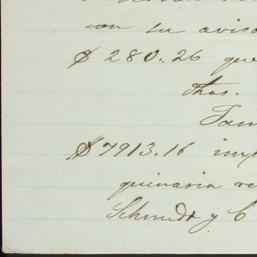 con su aviso
$ 280.26 que
Thos.
$ 7913.16 imp
quinaria re
Schmidt y C